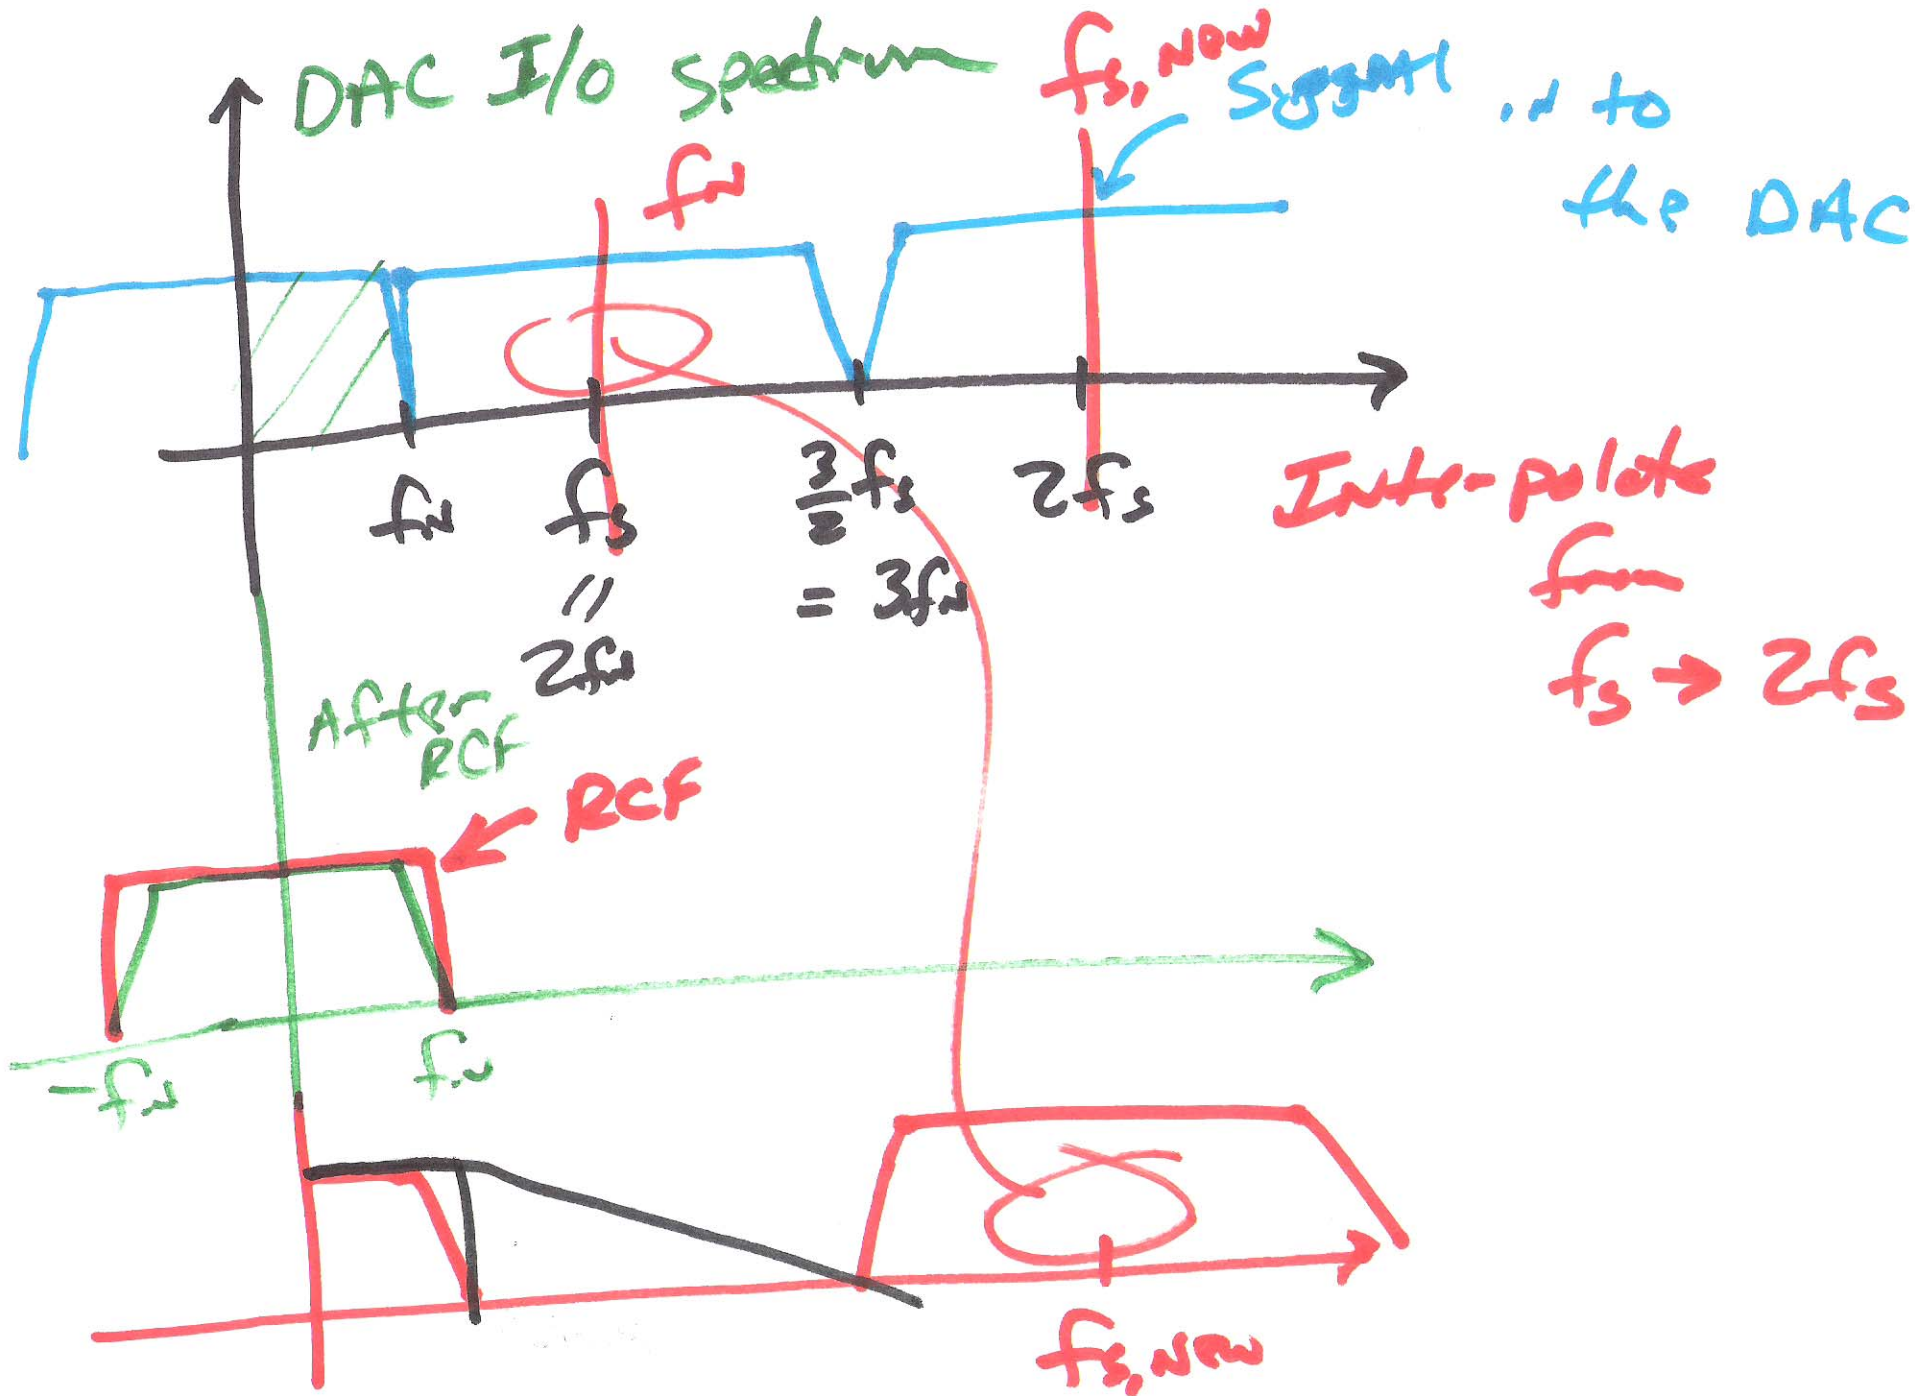 DAC I/O Spectrum
fs, New
in to
the DAC
fN
fN
fs
"
2fN
3/2 fs
= 3fN
2fs
Interpolate
from
fs → 2fs
After
RCF
RCF
-fN
fN
fs, New